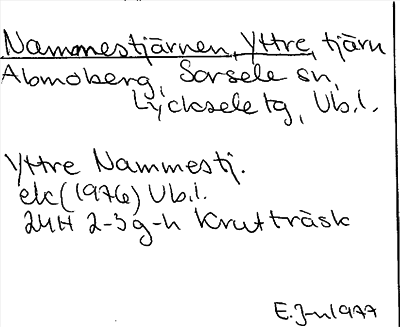 Nammestjärnen, Yttre, tjärn
Abmoberg, Sorsele sn,
Lycksele tg, Vb.l.
Yttre Nammestj.
ek (1976) Vb.l.
24H 2-3 g-h Krutträsk
E.J-n 1977